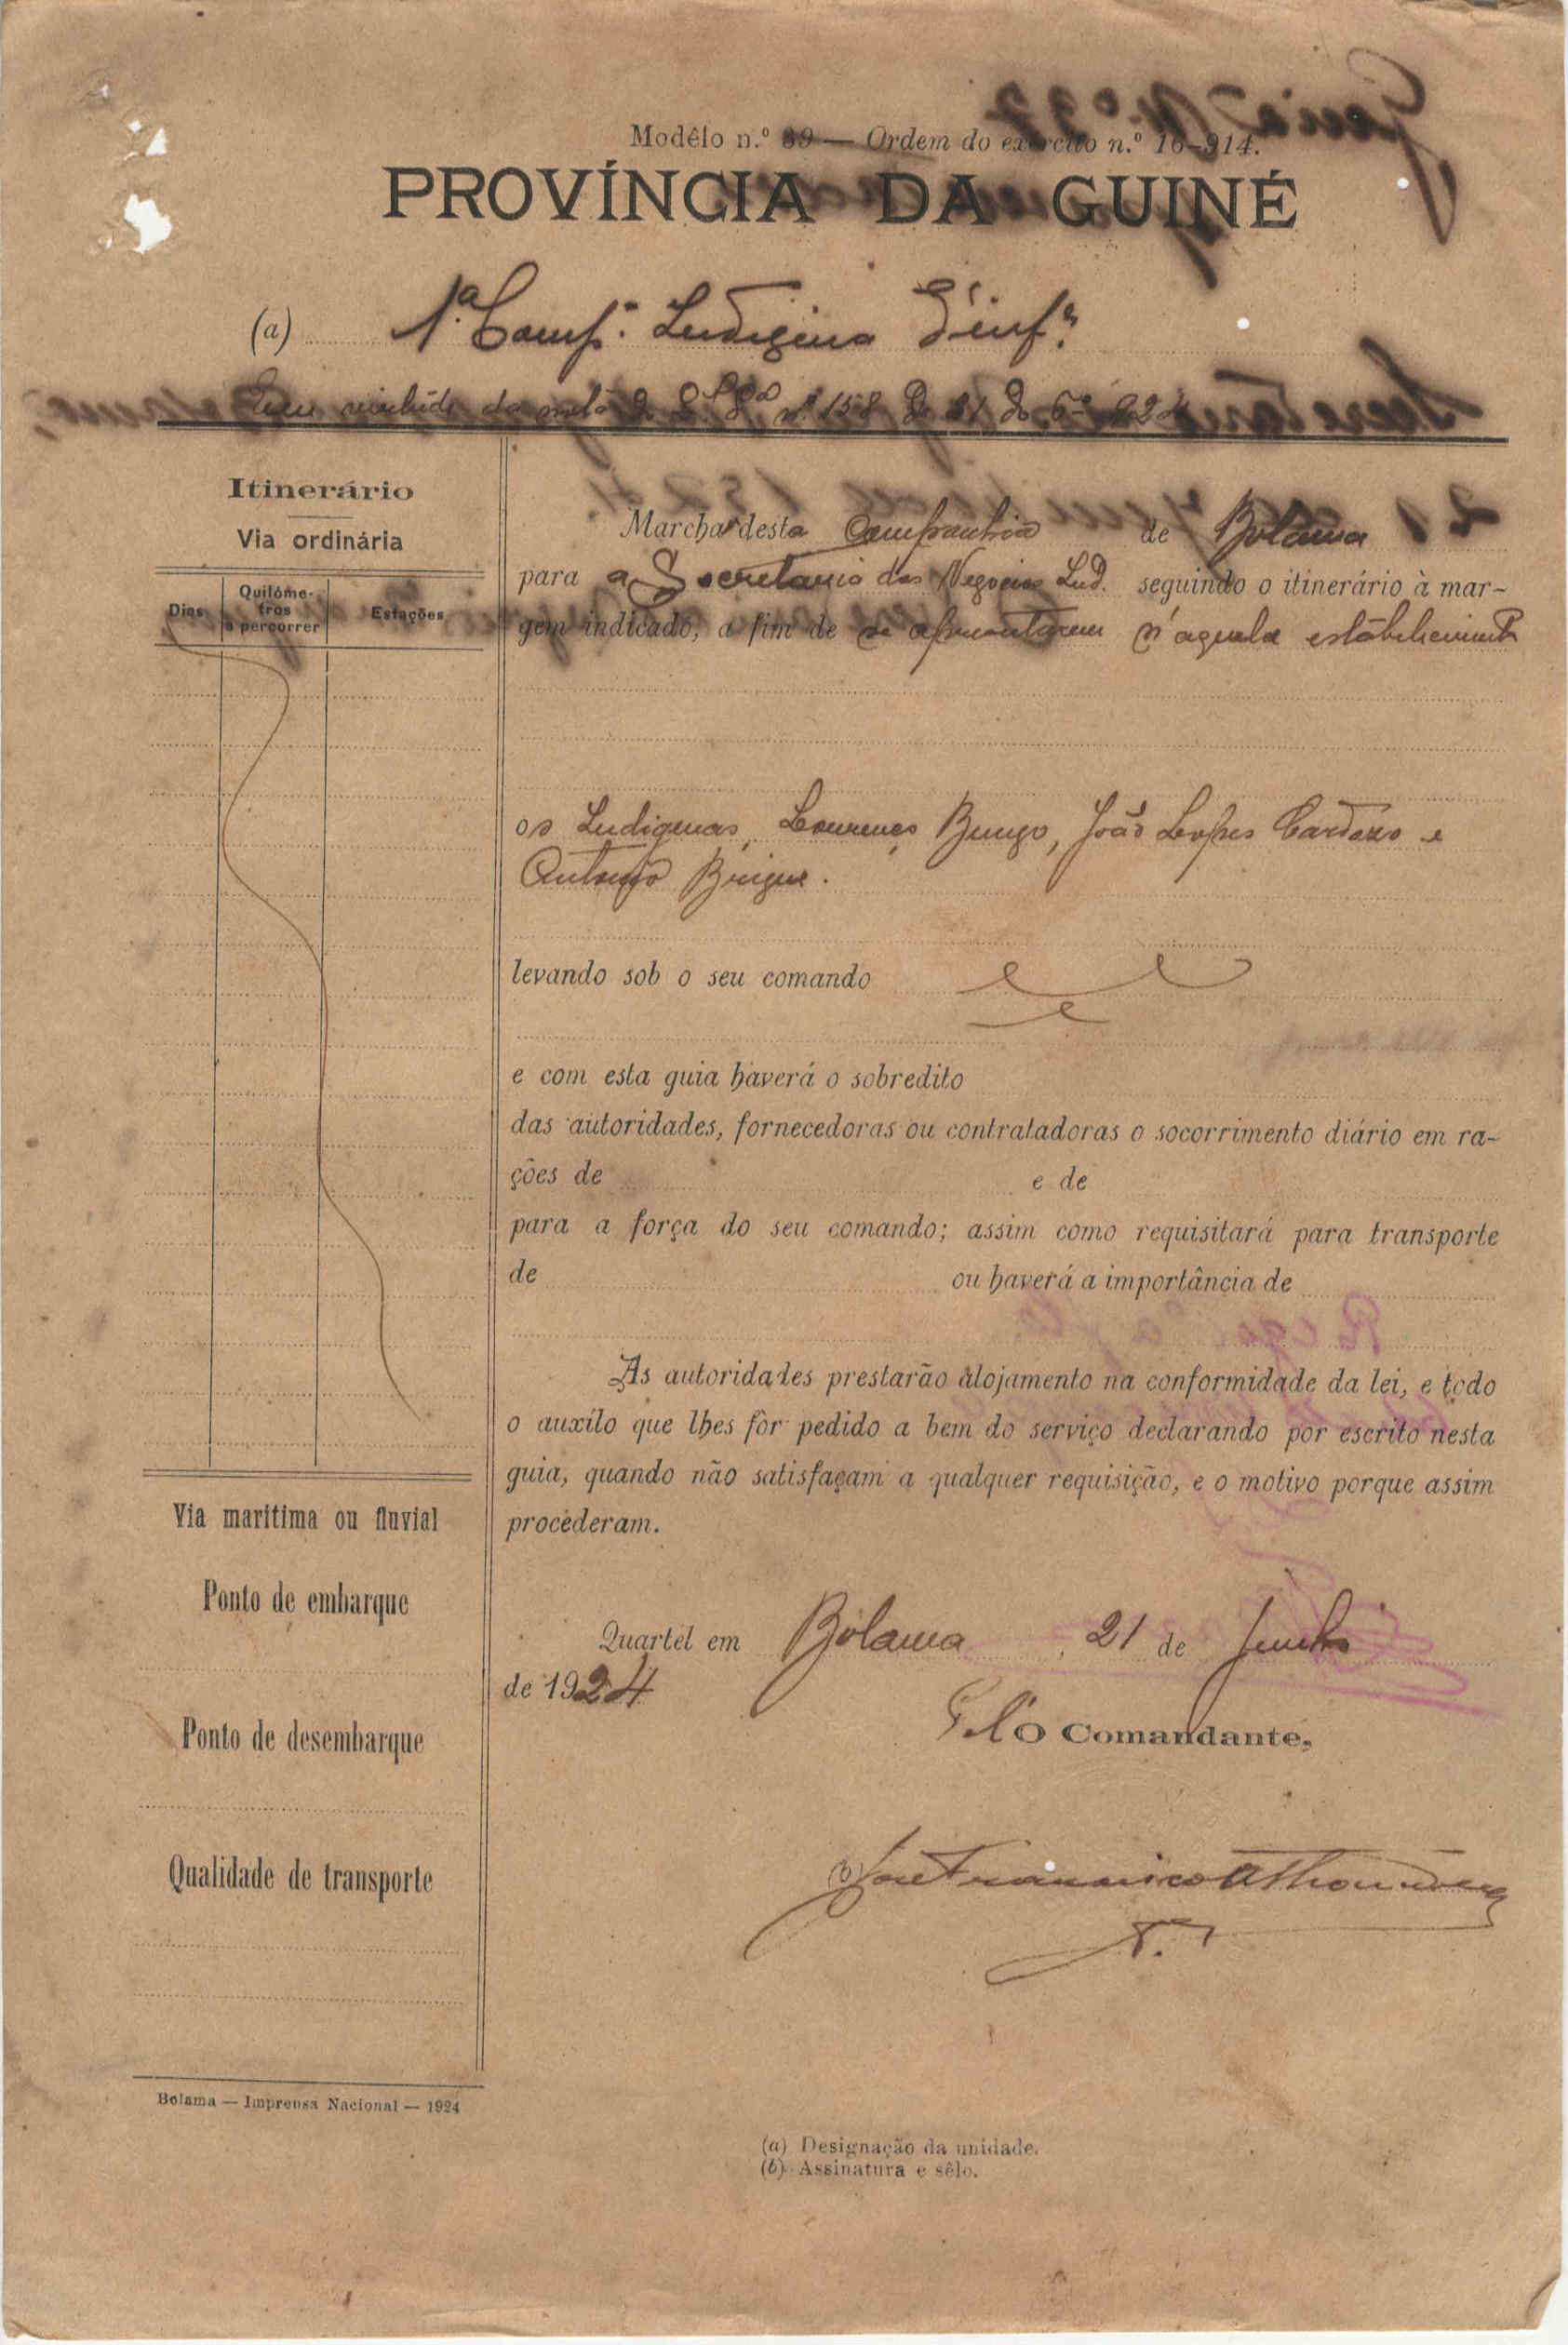 Modêlo n.º 39 — Ordem do exército n.º 16–914.
PROVÍNCIA DA GUINÉ
(a) 1.ª Comp.ª Indigena d'inf.ª
da nota n.º 158 de 21 de 6.º 924
Itinerário
Via ordinária
Dias
Quilóme-
tros
a percorrer
Estações
Marcha desta Companhia de Bolama
para a Secretaria dos Negocios Ind. seguindo o itinerário à mar-
gem indicado, a fim de se apresentarem n'aquele estabelecimento
os Indigenas, Lourenço Bungo, João Lopes Cardozo e
Antonio Bingue.
levando sob o seu comando
e com esta guia haverá o sobredito
das autoridades, fornecedoras ou contratadoras o socorrimento diário em ra-
ções de e de
para a força do seu comando; assim como requisitará para transporte
de ou haverá a importância de
As autoridades prestarão alojamento na conformidade da lei, e todo
o auxílo que lhes fôr pedido a bem do serviço declarando por escrito nesta
guia, quando não satisfaçam a qualquer requisição, e o motivo porque assim
procederam.
Via marítima ou fluvial
Ponto de embarque
Ponto de desembarque
Qualidade de transporte
Quartel em Bolama, 21 de Junho
de 1924
Pel'O Comandante,
(b) José Francisco
T.
Bolama — Imprensa Nacional — 1924
(a) Designação da unidade.
(b) Assinatura e sêlo.